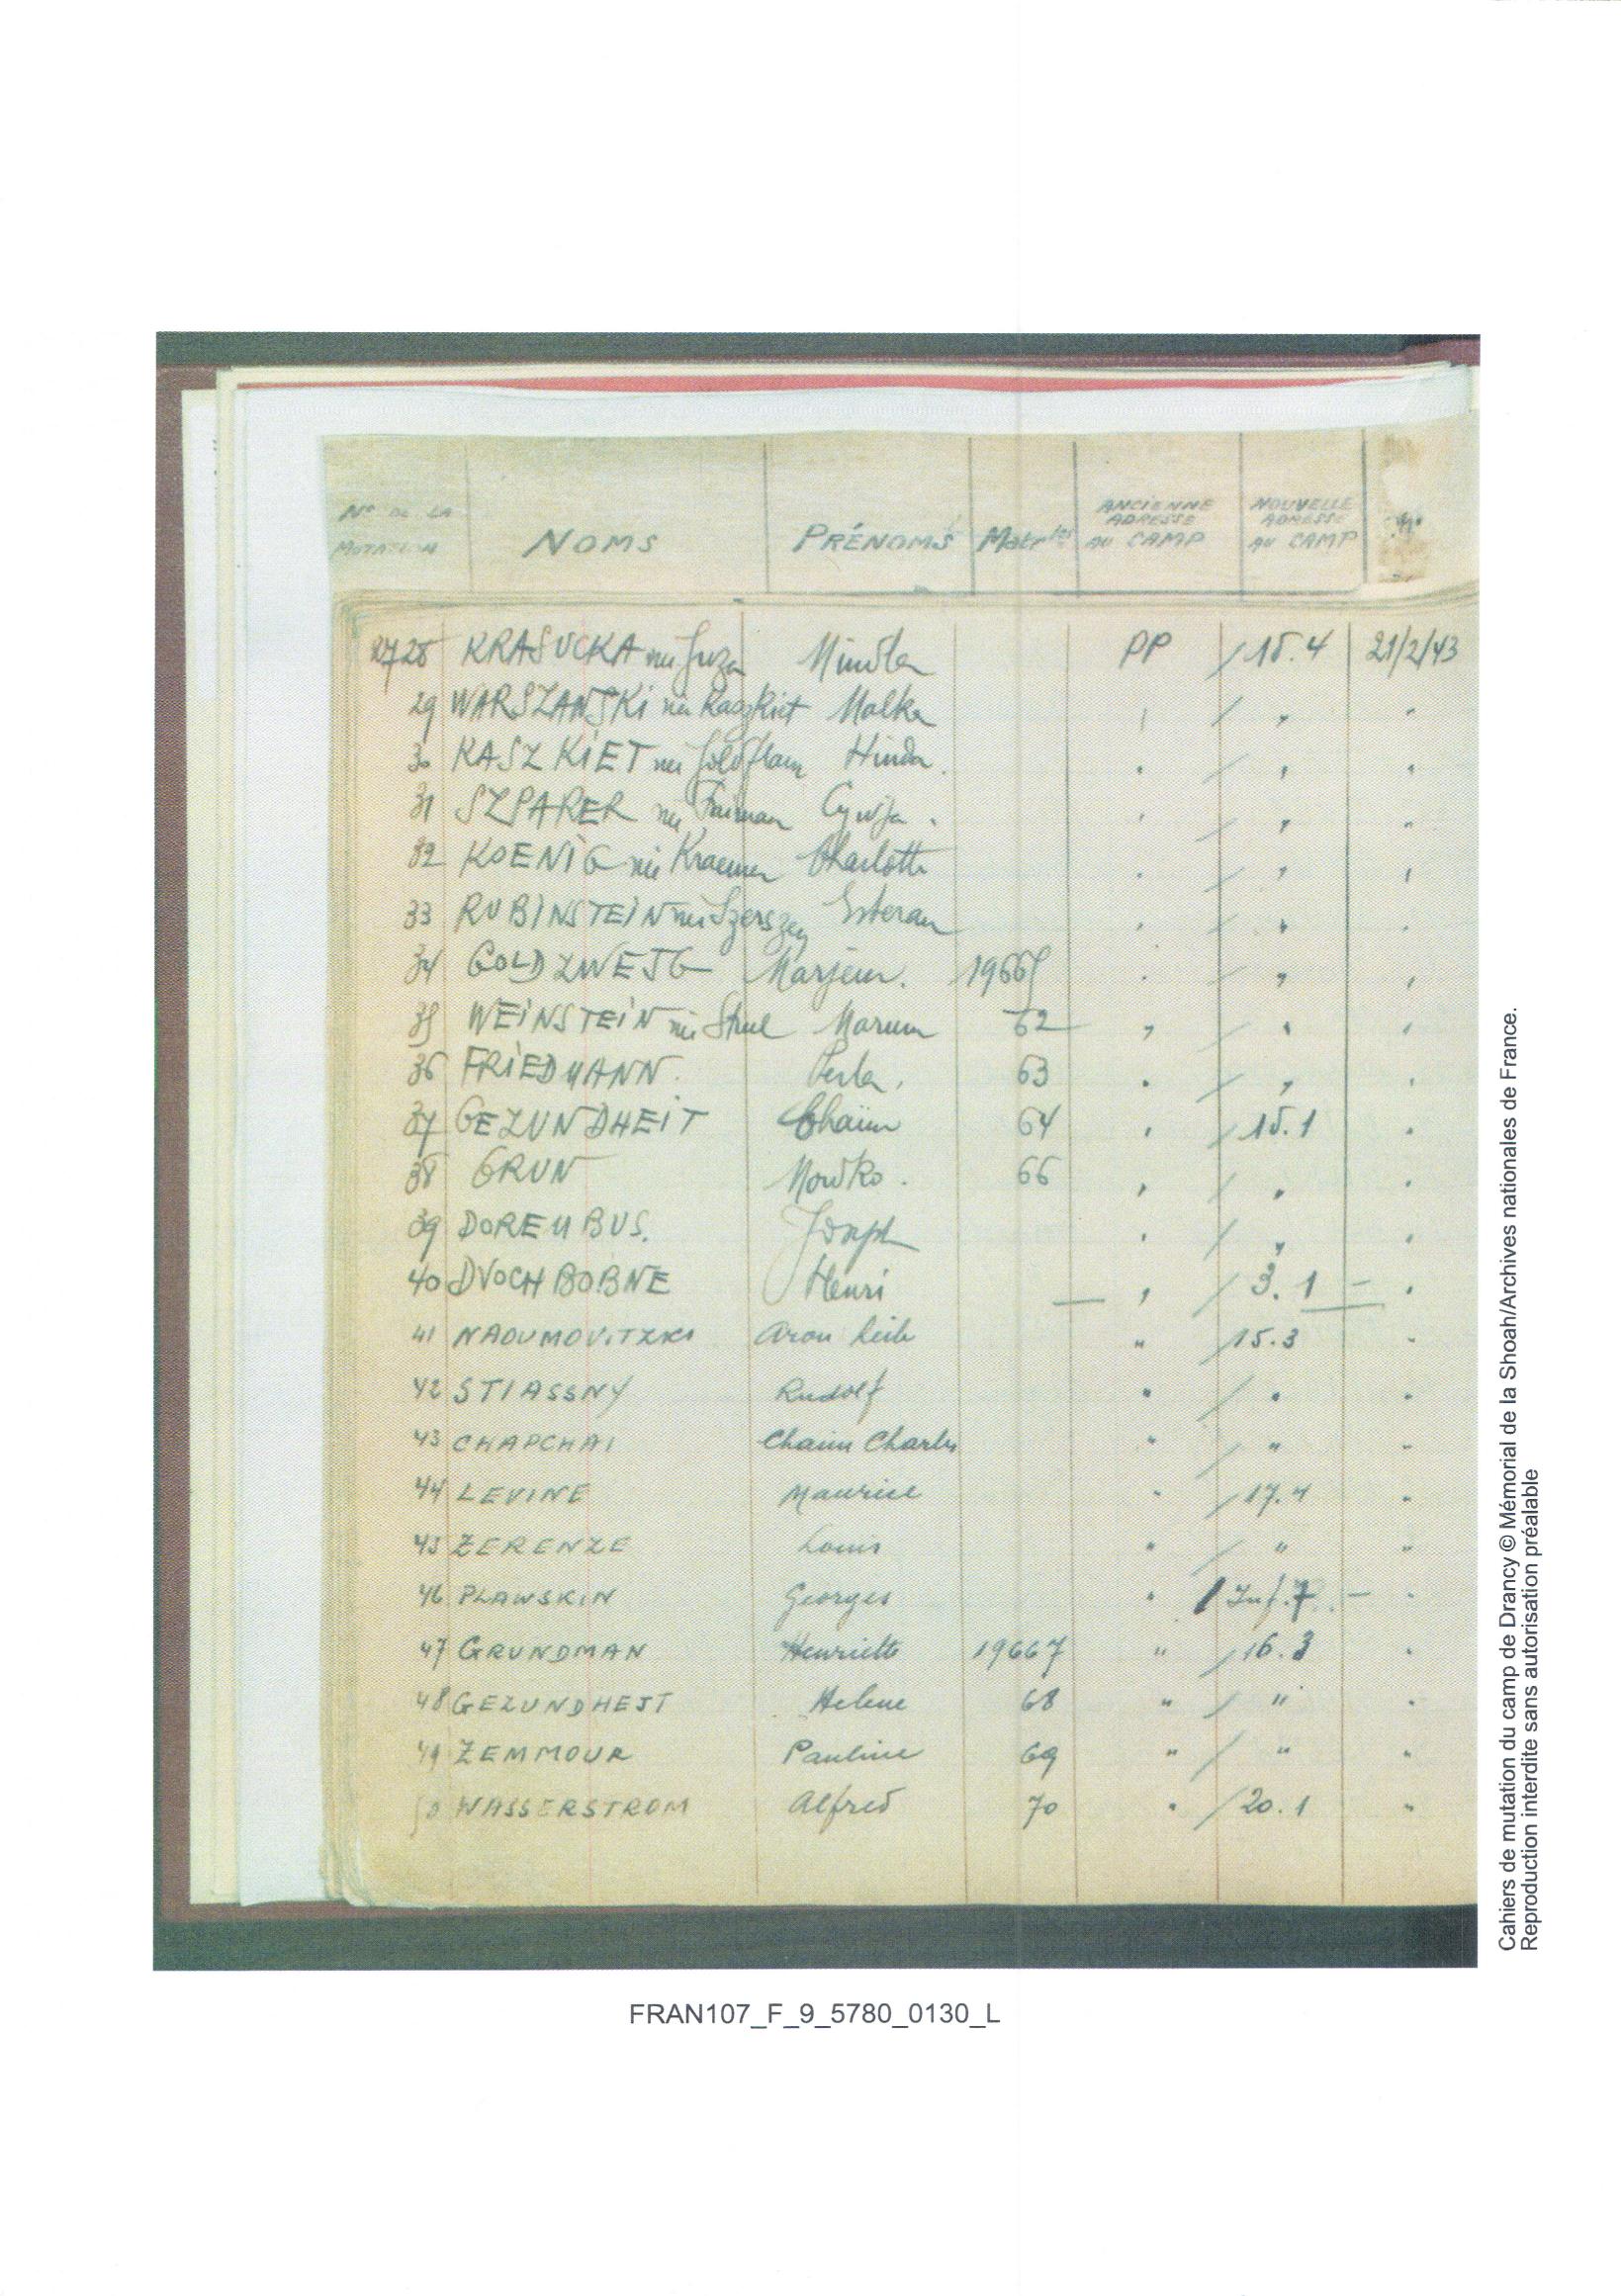 N° DE LA MUTATION NOMS PRÉNOMS Matr les ANCIENNE ADRESSE AU CAMP NOUVELLE ADRESSE AU CAMP
2728 KRASUCKA née Mindla PP / 15.4 21/2/43
29 WARSZAWSKI née Kaszkiet Malka / " "
30 KASZKIET née Goldflam Hinda . " / " "
31 SZPARER née Faiman Cywja . " / " "
32 KOENIG née Kraemer Charlotte " / " "
33 RUBINSTEIN née Szerszen Esteran " / " "
34 GOLDZWEJG Marjem. 19665 " / " "
35 WEINSTEIN née Strul 62 " / " "
36 FRIEDMANN. Perla. 63 " / " "
37 GEZUNDHEIT Chaïm 64 " / 15.1 "
38 GRUN Mordko . 66 " / " "
39 DOREMBUS. Joseph " / " "
40 DVOCHBOBNE Henri — " / 3.1 — "
41 NAOUMOVITZKI Aron Leib " / 15.3 "
42 STIASSNY Rudolf " / " "
43 CHAPCHAI Chaim Charles " / " "
44 LEVINE Maurice " / 17.4 "
45 ZERENZE Louis " / " "
46 PLAWSKIN Georges " / Inf. 7 — "
47 GRUNDMAN Henriette 19667 " / 16.3 "
48 GEZUNDHEJT Helene 68 " / " "
49 ZEMMOUR Pauline 69 " / " "
50 WASSERSTROM Alfred 70 " / 20.1 "
Cahiers de mutation du camp de Drancy © Mémorial de la Shoah/Archives nationales de France.
Reproduction interdite sans autorisation préalable
FRAN107_F_9_5780_0130_L